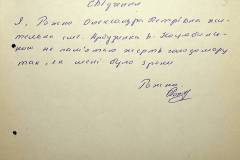 Свідчення
Я, Рожко Олександра Петрівна жи-
телька смт. Арбузинка в.
кож не пам'ятаю жертв голодомору
так, як мені було 3 роки
Рожко